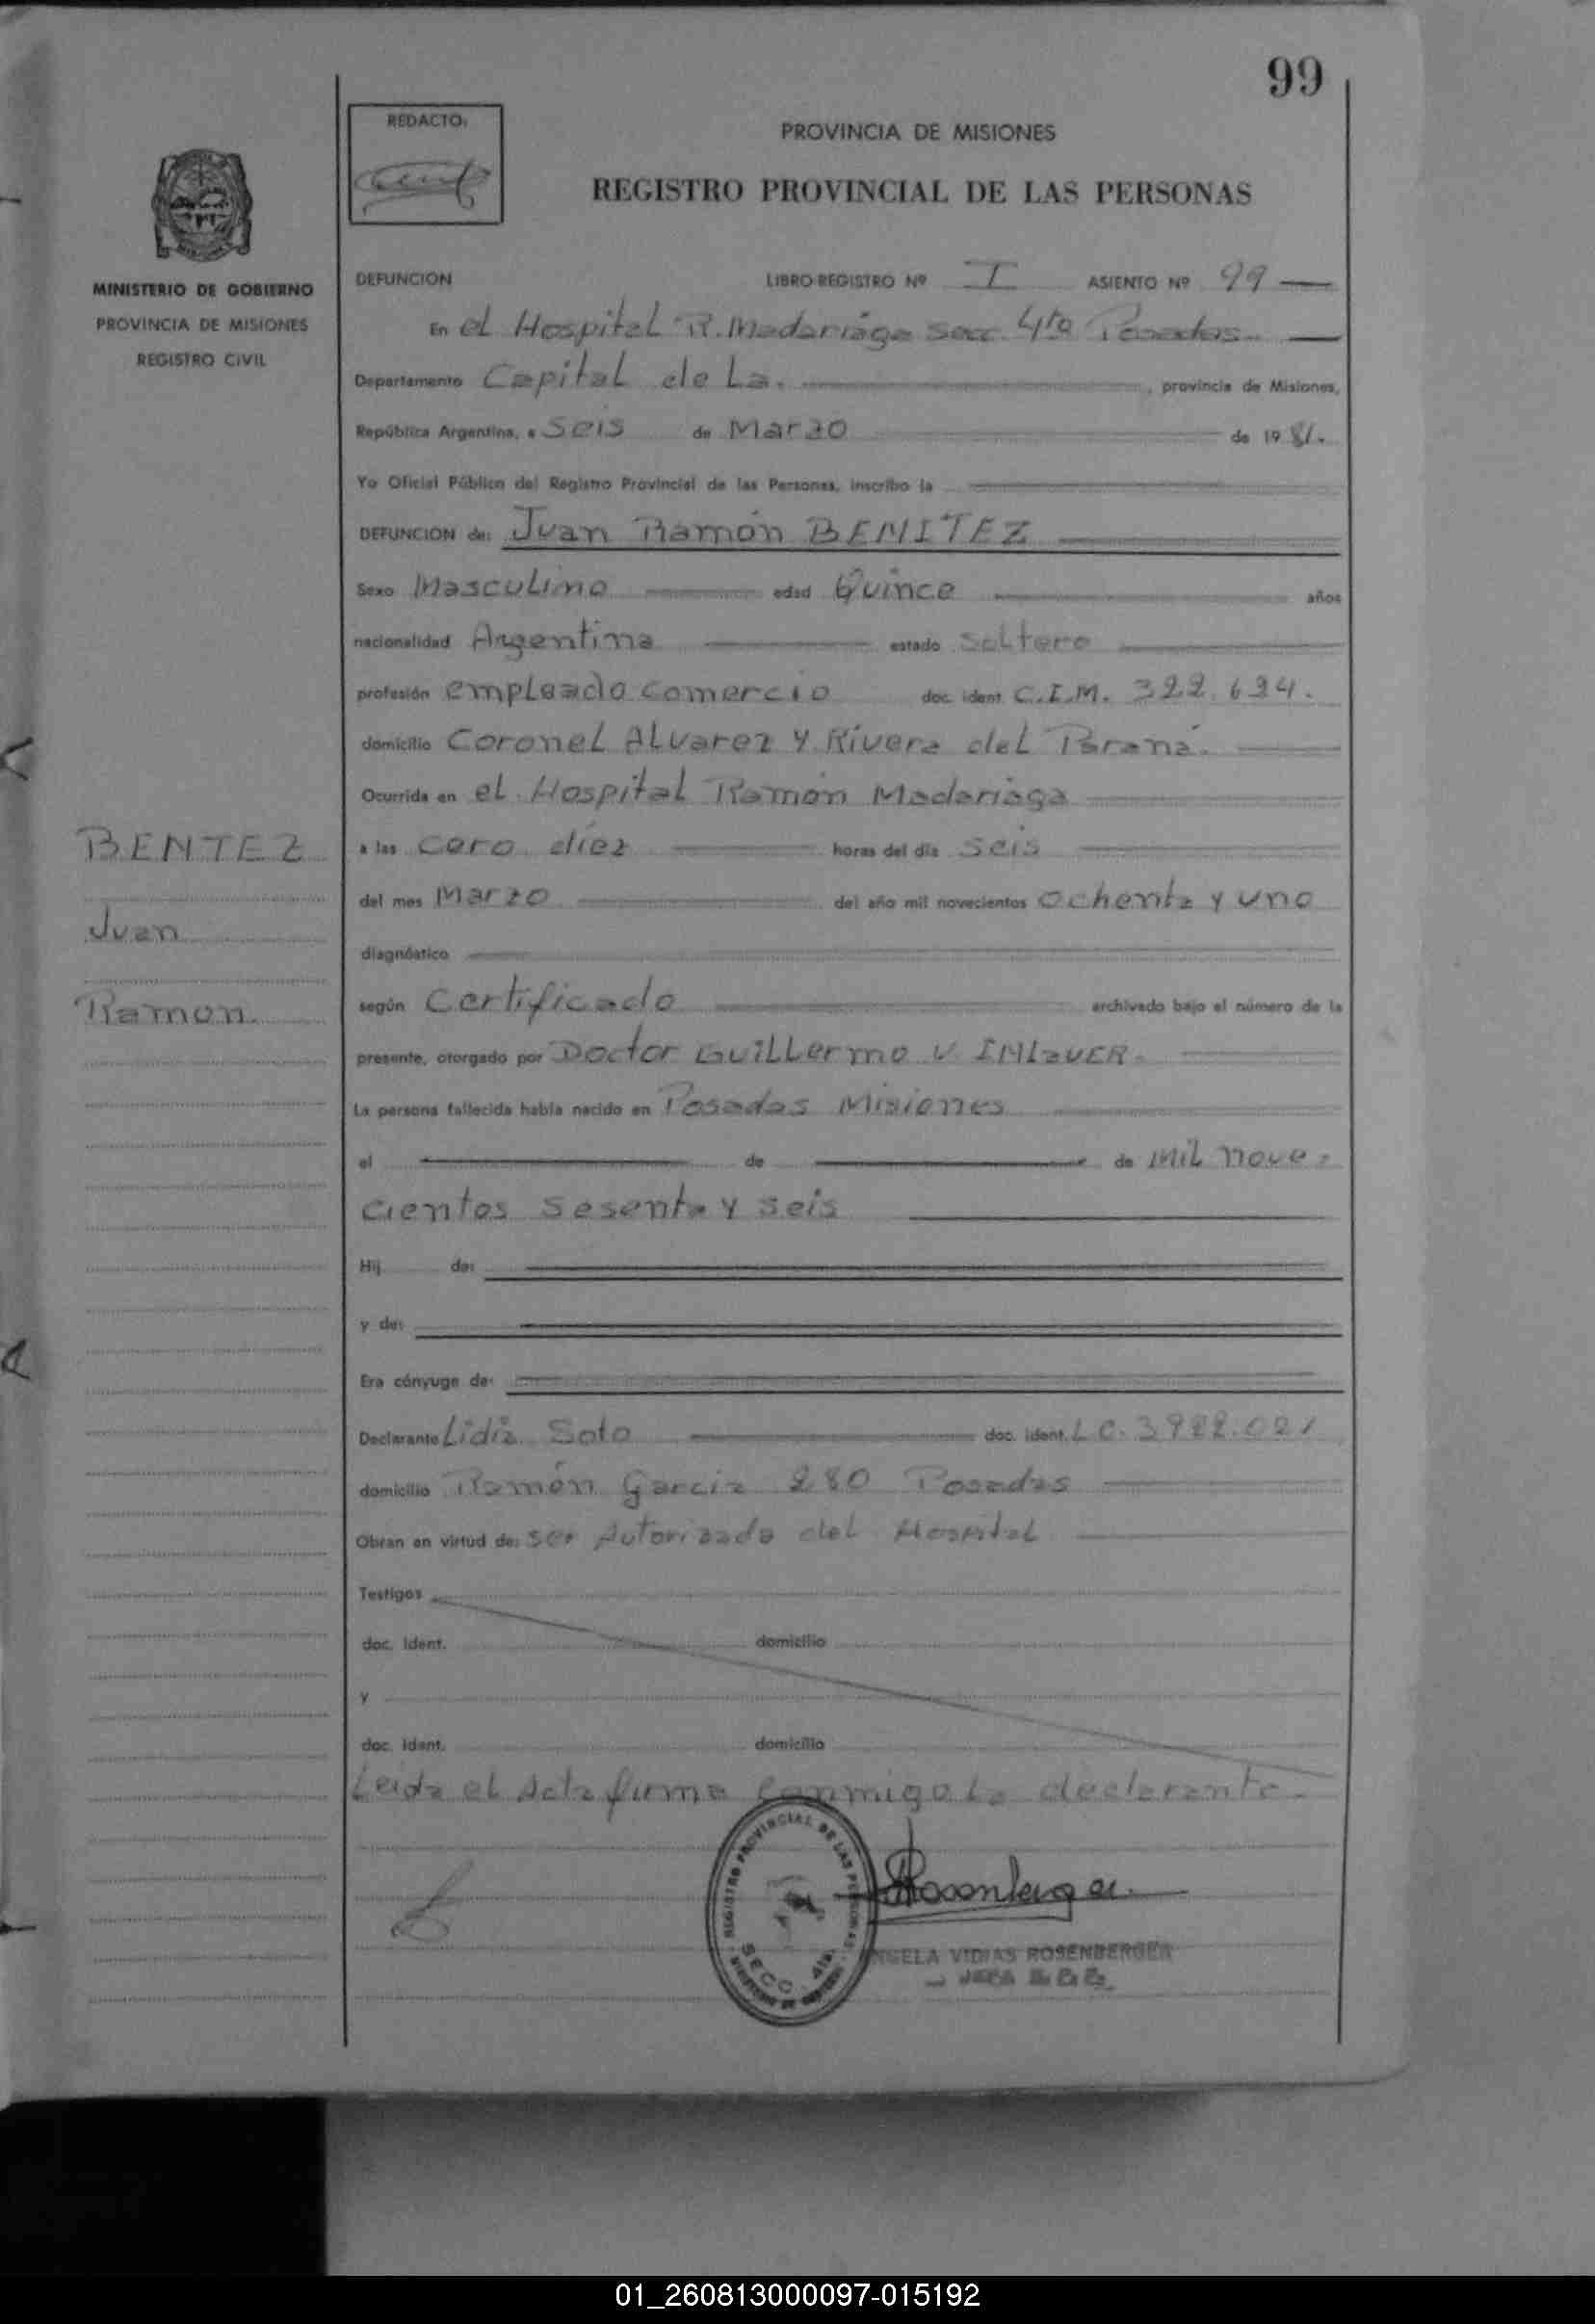 99
REDACTO:
PROVINCIA DE MISIONES
REGISTRO PROVINCIAL DE LAS PERSONAS
MINISTERIO DE GOBIERNO
PROVINCIA DE MISIONES
REGISTRO CIVIL
DEFUNCION LIBRO REGISTRO Nº I ASIENTO Nº 99
En el Hospital R. Madariaga Secc. 4ta Posadas
Departamento Capital de La. , provincia de Misiones,
República Argentina, a Seis de Marzo de 19 81.
Yo Oficial Público del Registro Provincial de las Personas, inscribo la
DEFUNCION de: Juan Ramón BENITEZ
Sexo Masculino edad Quince años
nacionalidad Argentina estado Soltero
profesión empleado comercio doc. ident. C.I.M. 322.694.
domicilio Coronel Alvarez y Rivera del Paraná.
Ocurrida en el Hospital Ramón Madariaga
a las Cero diez horas del día Seis
del mes Marzo del año mil novecientos Ochenta y uno
diagnóstico
según Certificado archivado bajo el número de la
presente, otorgado por Doctor Guillermo V
La persona fallecida había nacido en Posadas Misiones
el de de Mil nove-
cientos Sesenta y Seis
Hij de:
y de:
Era cónyuge de:
Declarante Lidia Soto doc. ident. L C. 3922.021
domicilio Ramón Garcia 280 Posadas
Obran en virtud de: ser Autorizada del Hospital
Testigos
doc. ident. domicilio
y
doc. ident. domicilio
Leida el Acta firma Conmigo La declarante.
BENTEZ
Juan
Ramon
REGISTRO PROVINCIAL DE LAS PERSONAS
SECC. 4ta.
Rosenberger
ANGELA VIDIAS ROSENBERGER
01_260813000097-015192